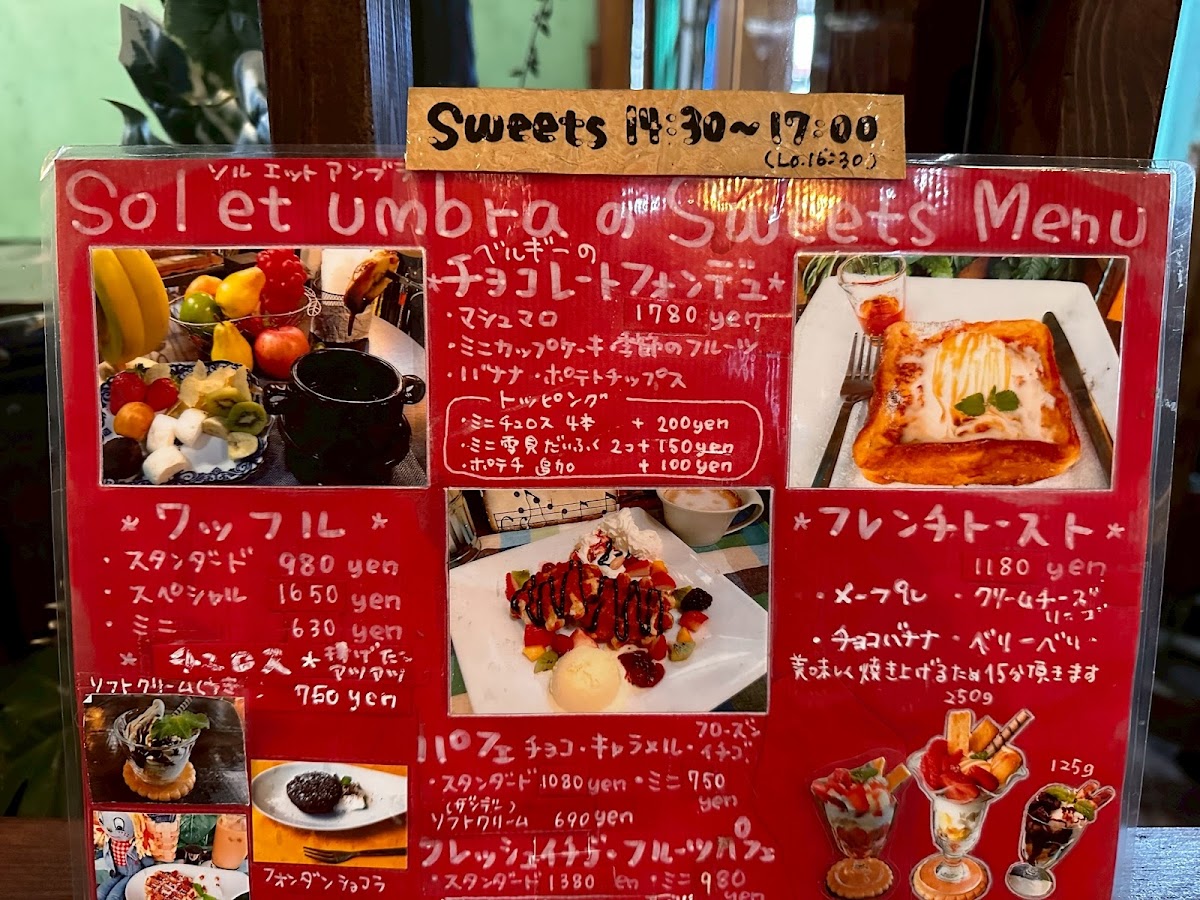 Sweets 14:30~17:00
(Lo.16:30)
ソル エット アンブラ
Sol et umbra の Sweets Menu
ベルギーの
*チョコレートフォンデュ*
・マシュマロ 1780 yen
・ミニカップケーキ・季節のフルーツ
・バナナ・ポテトチップス
トッピング
・ミニチュロス 4本 + 200yen
・ミニ雪見だいふく 2コ+150yen
・ポテチ 追加 + 100yen
* ワッフル *
・スタンダード 980 yen
・スペシャル 1650 yen
・ミニ 630 yen
* チュロス * 揚げたて
アツアツ
ソフトクリームつき 750yen
フォンダンショコラ
パフェ チョコ・キャラメル・フローズン
イチゴ
・スタンダード 1080yen ・ミニ 750
yen
ソフトクリーム 690yen
フレッシュイチゴ・フルーツパフェ
・スタンダード 1380 en ・ミニ 980
yen
*フレンチトースト*
1180 yen
・メープル ・クリームチーズ
リンゴ
・チョコバナナ ・ベリーベリー
美味しく焼き上げるため15分頂きます
250g
125g